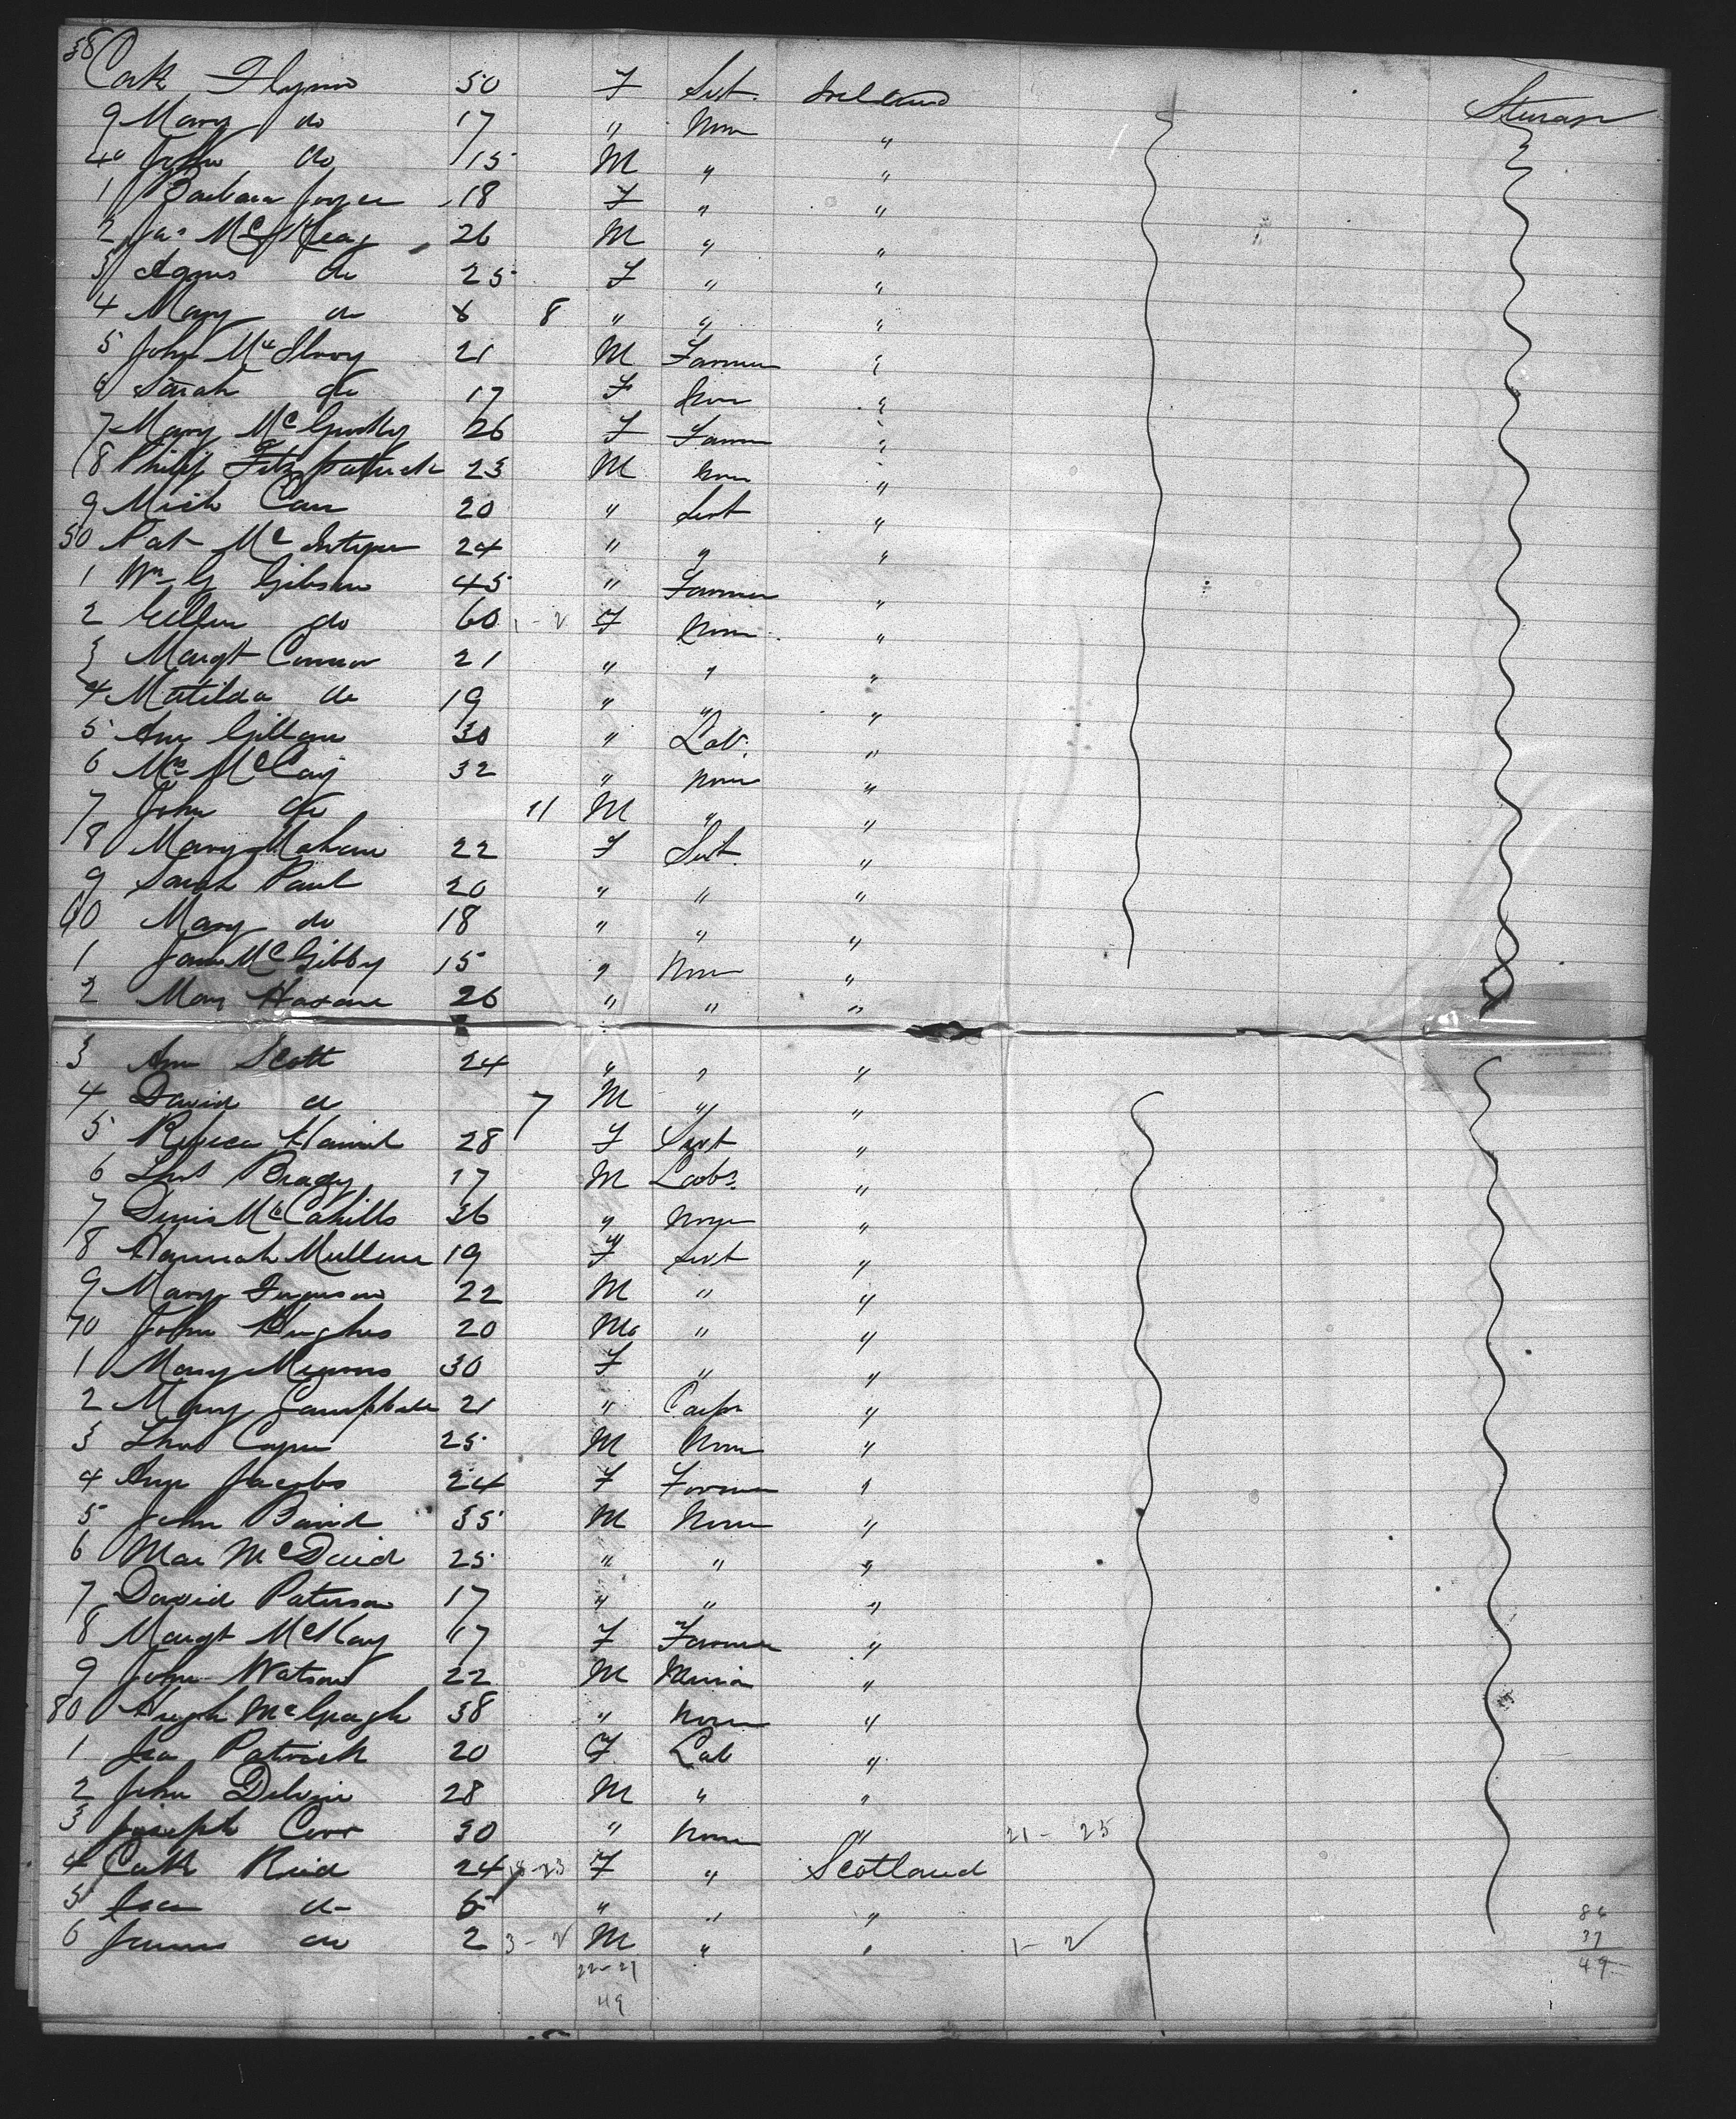 38 Cath Flynn 50 F Svt. Ireland Steerage
9 Mary do 17 " Non "
40 John do 15 M " "
1 Barbara Joyce 18 F " "
2 Jas McKeay 26 M " "
3 Agnes do 25 F " "
4 Mary do 8 " " "
5 John McIlroy 21 M Farmer "
6 Sarah do 17 F Non "
7 Mary 26 F Farmer "
8 Philip Fitzpatrick 23 M Non "
9 Mich Carr 20 " Svt "
50 Pat McIntyre 24 " " "
1 Wm G Gibson 45 " Farmer "
2 Ellen do 60 1 - 2 F Non "
3 Margt Connor 21 " " "
4 Matilda do 19 " " "
5 Ann Gillam 30 " Lab. "
6 Mrs McCay 32 " Non "
7 John do 11 M " "
8 Mary Mahan 22 F Svt. "
9 Sarah Paul 20 " " "
60 Mary do 18 " " "
1 Jane McGibby 15 " Non "
2 Mary 26 " " "
3 Ann Scott 24 " " "
4 David do 7 M " "
5 Rebecca Hamil 28 F Svt "
6 Thos Brady 17 M Labr. "
7 Denis McCahills 36 " Non "
8 Hannah Mullene 19 F Svt "
9 Mary Ferguson 22 M " "
70 John Hughes 20 M " "
1 Mary 30 F " "
2 Mary Campbell 21 " Carpr "
3 Thos 25 M Non "
4 Ann Jacobs 24 F Farmer "
5 John Baird 35 M Non "
6 McDaid 25 " " "
7 David Paterson 17 " " "
8 Margt McKay 17 F Farmer "
9 John Watson 22 M "
80 Hugh McGeagh 38 " Non "
1 Patrick 20 F Lab "
2 John Delvin 28 M " "
3 Joseph Corr 30 " Non " 21 - 25
4 Cath Reid 24 18-23 F " Scotland
5 do 6 " " "
6 James do 2 3 - 2 M " " 1 - 2
86
37
49
22-27
49